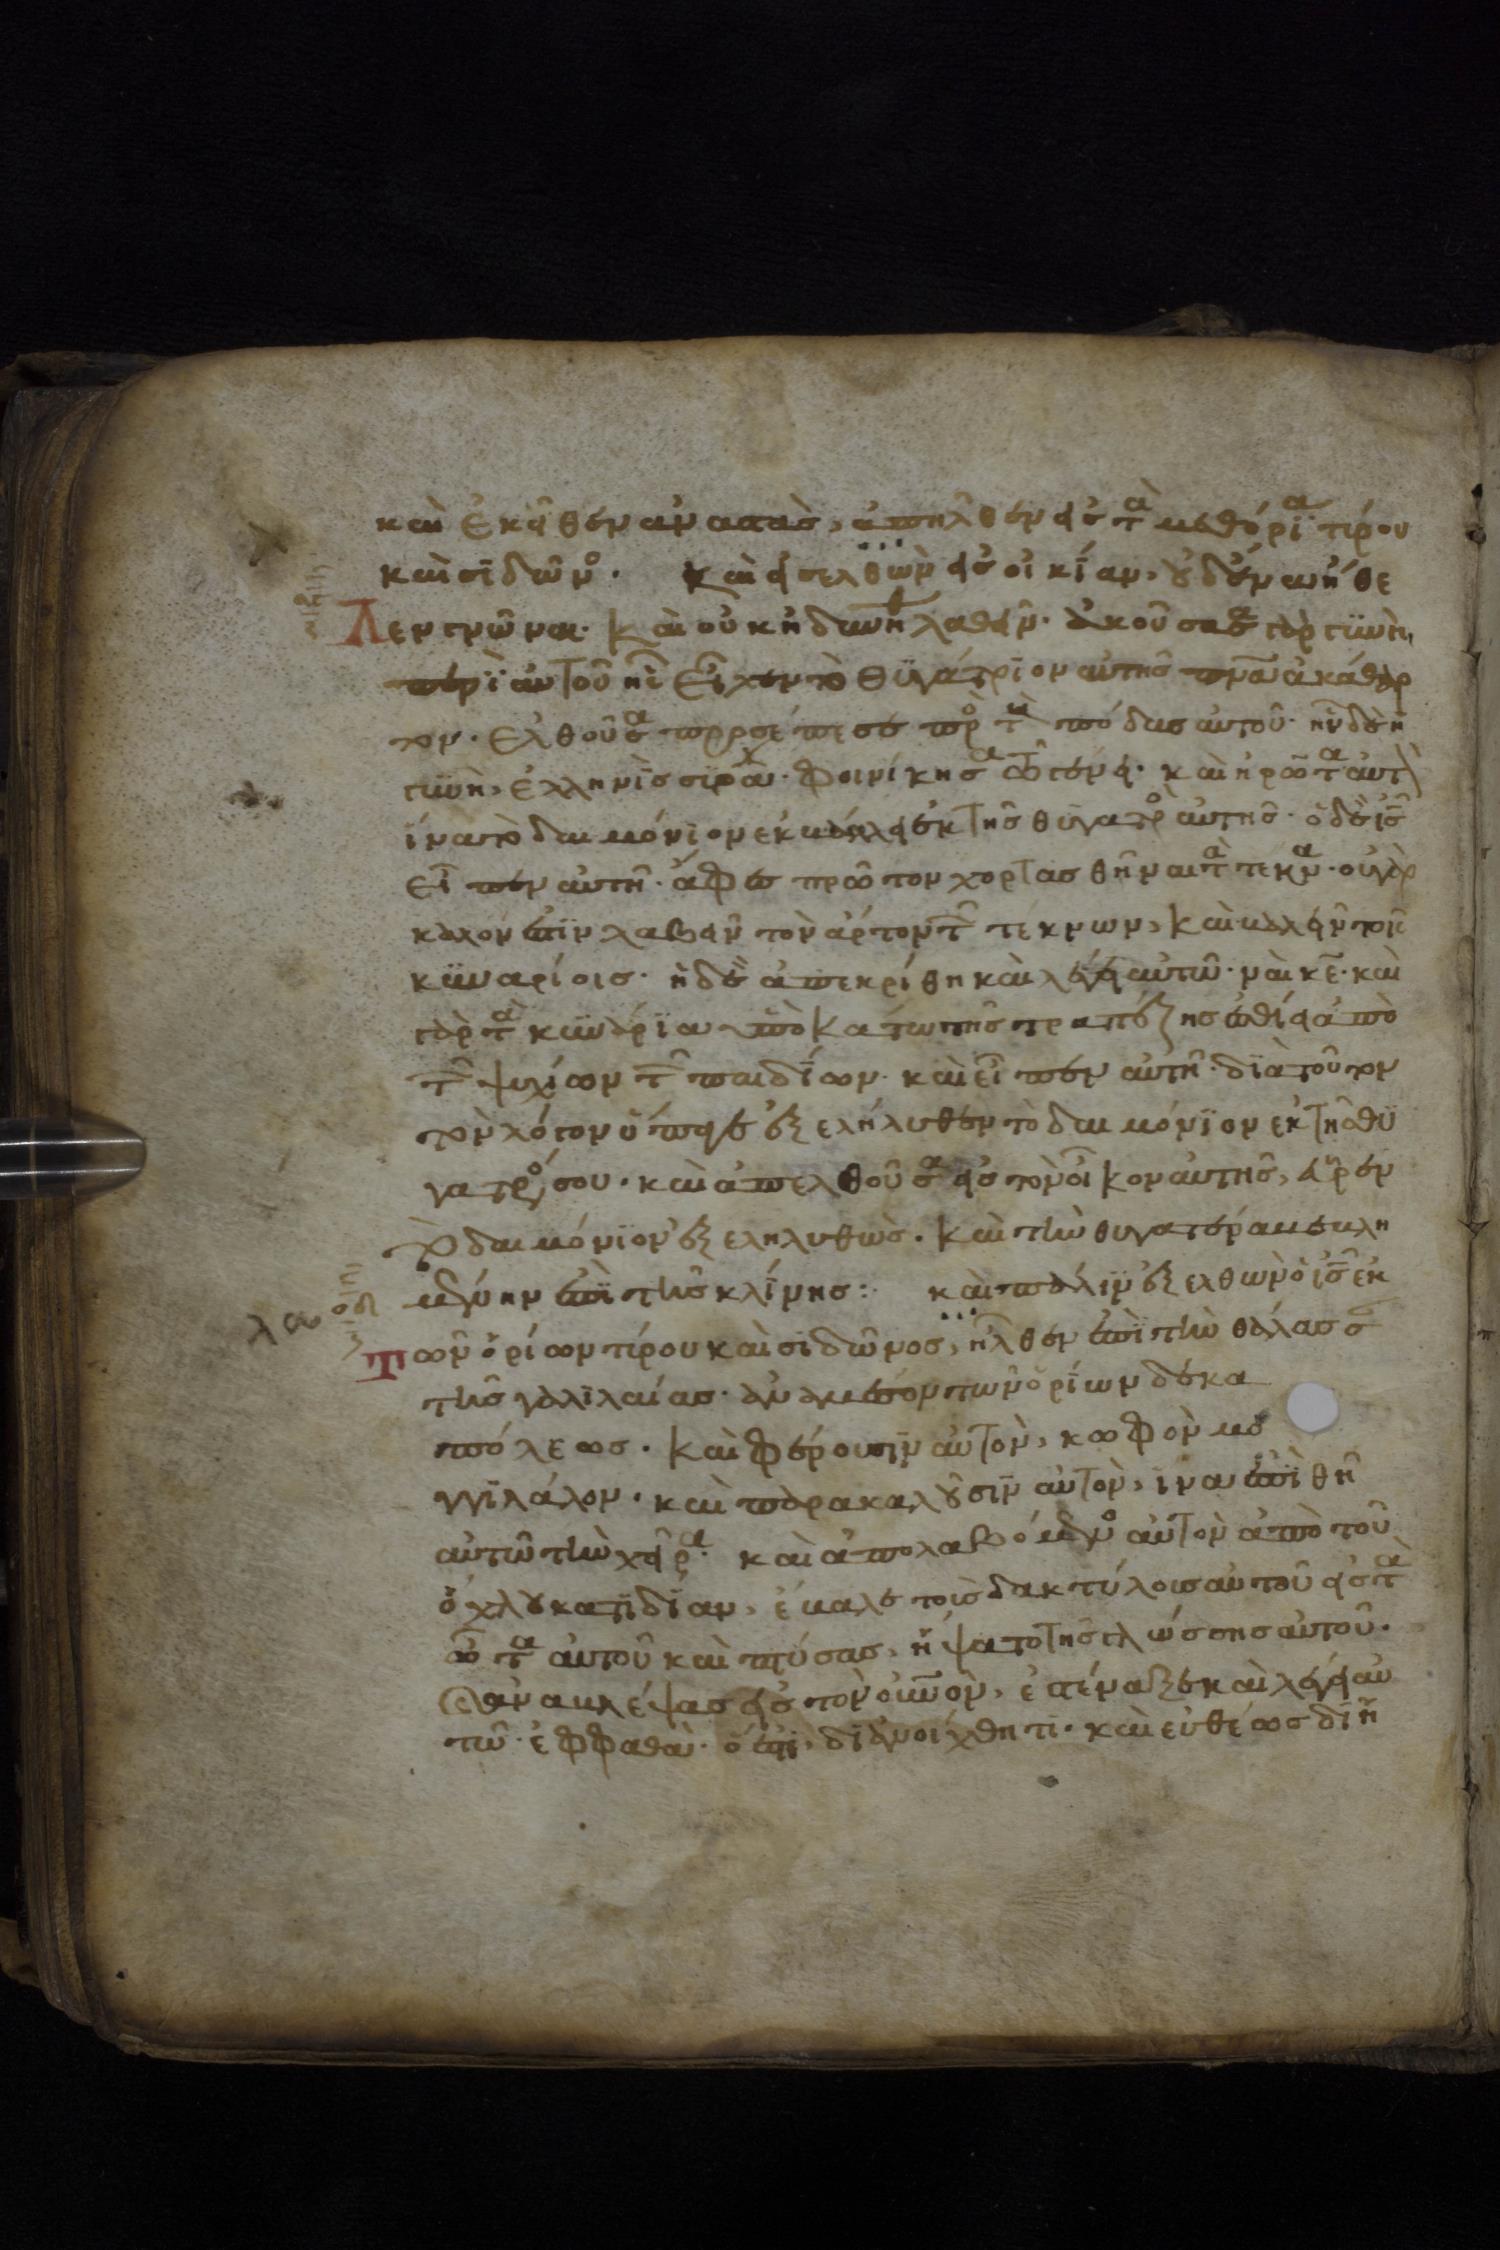 καὶ ἐκεῖθεν ἀναστὰς, ἀπῆλθεν εἰς τὰ μεθόρϊα τύρου
καὶ σϊδῶνος. Καὶ εἰσελθὼν εἰς οἰκίαν, οὐδένα ἤθε
λεν γνῶναι. Καὶ οὐκ ἠδυνήθη λαθεῖν. ἀκούσασα γὰρ γϋνὴ
περὶ αὐτοῦ ἧς εἶχεν τὸ θϋγάτρϊον αὐτῆς πνα ἀκάθαρ
τον. ἐλθοῦσα προσέπεσε πρὸς τοὺς πόδας αὐτοῦ. ἦν δὲ ἡ
γϋνὴ, ἑλληνὶς σϋρα. φοινίκησα τῶ γένει. καὶ ἠρώτα αὐτὸν
ἵνα τὸ δαιμόνϊον ἐκβάλλει ἐκ τῆς θϋγατρὸς αὐτῆς. ὁ δὲ ις
εἶπεν αὐτῆ. ἄφες πρῶτον χορτασθῆναι τὰ τέκνα. οὐ γὰρ
καλόν ἐστϊν λαβεῖν τὸν ἄρτον τῶν τέκνων, καὶ βαλεῖν τοῖς
κϋναρίοις. ἡ δὲ ἀπεκρίθη καὶ λέγει αὐτῶ. ναὶ κε. καὶ
γὰρ τὰ κϋνάρϊα ὑποκάτω τῆς τραπέζης ἐσθίει ἀπὸ
τῶν ψιχίων τῶν παιδΐων. καὶ εἶπεν αὐτῆ. δϊὰ τοῦτον
τὸν λόγον ὕπαγε ἐξελήλυθεν τὸ δαιμόνϊον ἐκ τῆς θϋ
γατρός σου. καὶ ἀπελθοῦσα εἰς τὸν οἶκον αὐτῆς, εὗρεν
τὸ δαιμόνϊον ἐξεληλυθὼς. Καὶ τὴν θυγατέρα βεβλη
μένην ἐπὶ τῆς κλΐνης: καὶ πάλϊν ἐξελθὼν ὁ ις ἐκ
τῶν ὁρίων τύρου καὶ σϊδῶνος, ἦλθεν ἐπὶ τὴν θάλασσαν
τῆς γαλϊλαίας. ἀνὰ μέσον τῶν ὁρΐων δεκα
πόλεως. Καὶ φέρουσϊν αὐτὸν, κωφὸν μο
γγϊλάλον. καὶ παρακαλοῦσϊν αὐτὸν, ἵνα ἐπϊθῆ
αὐτῶ τὴν χεῖρα. καὶ ἀπολαβόμενος αὐτὸν ἀπὸ τοῦ
ὄχλου κατϊδΐαν, ἔβαλε τοὺς δακτύλους αὐτοῦ εἰς τὰ
ὦτα αὐτοῦ καὶ πτύσας, ἥψατο τῆς γλώσσης αὐτοῦ.
καὶ ἀναβλέψας εἰς τὸν οὐνον, ἐστέναξε καὶ λέγει αὐ
τῶ. ἐφφαθὰ. ὅ ἐστϊ, δϊανοίχθητϊ. καὶ εὐθέως δϊη